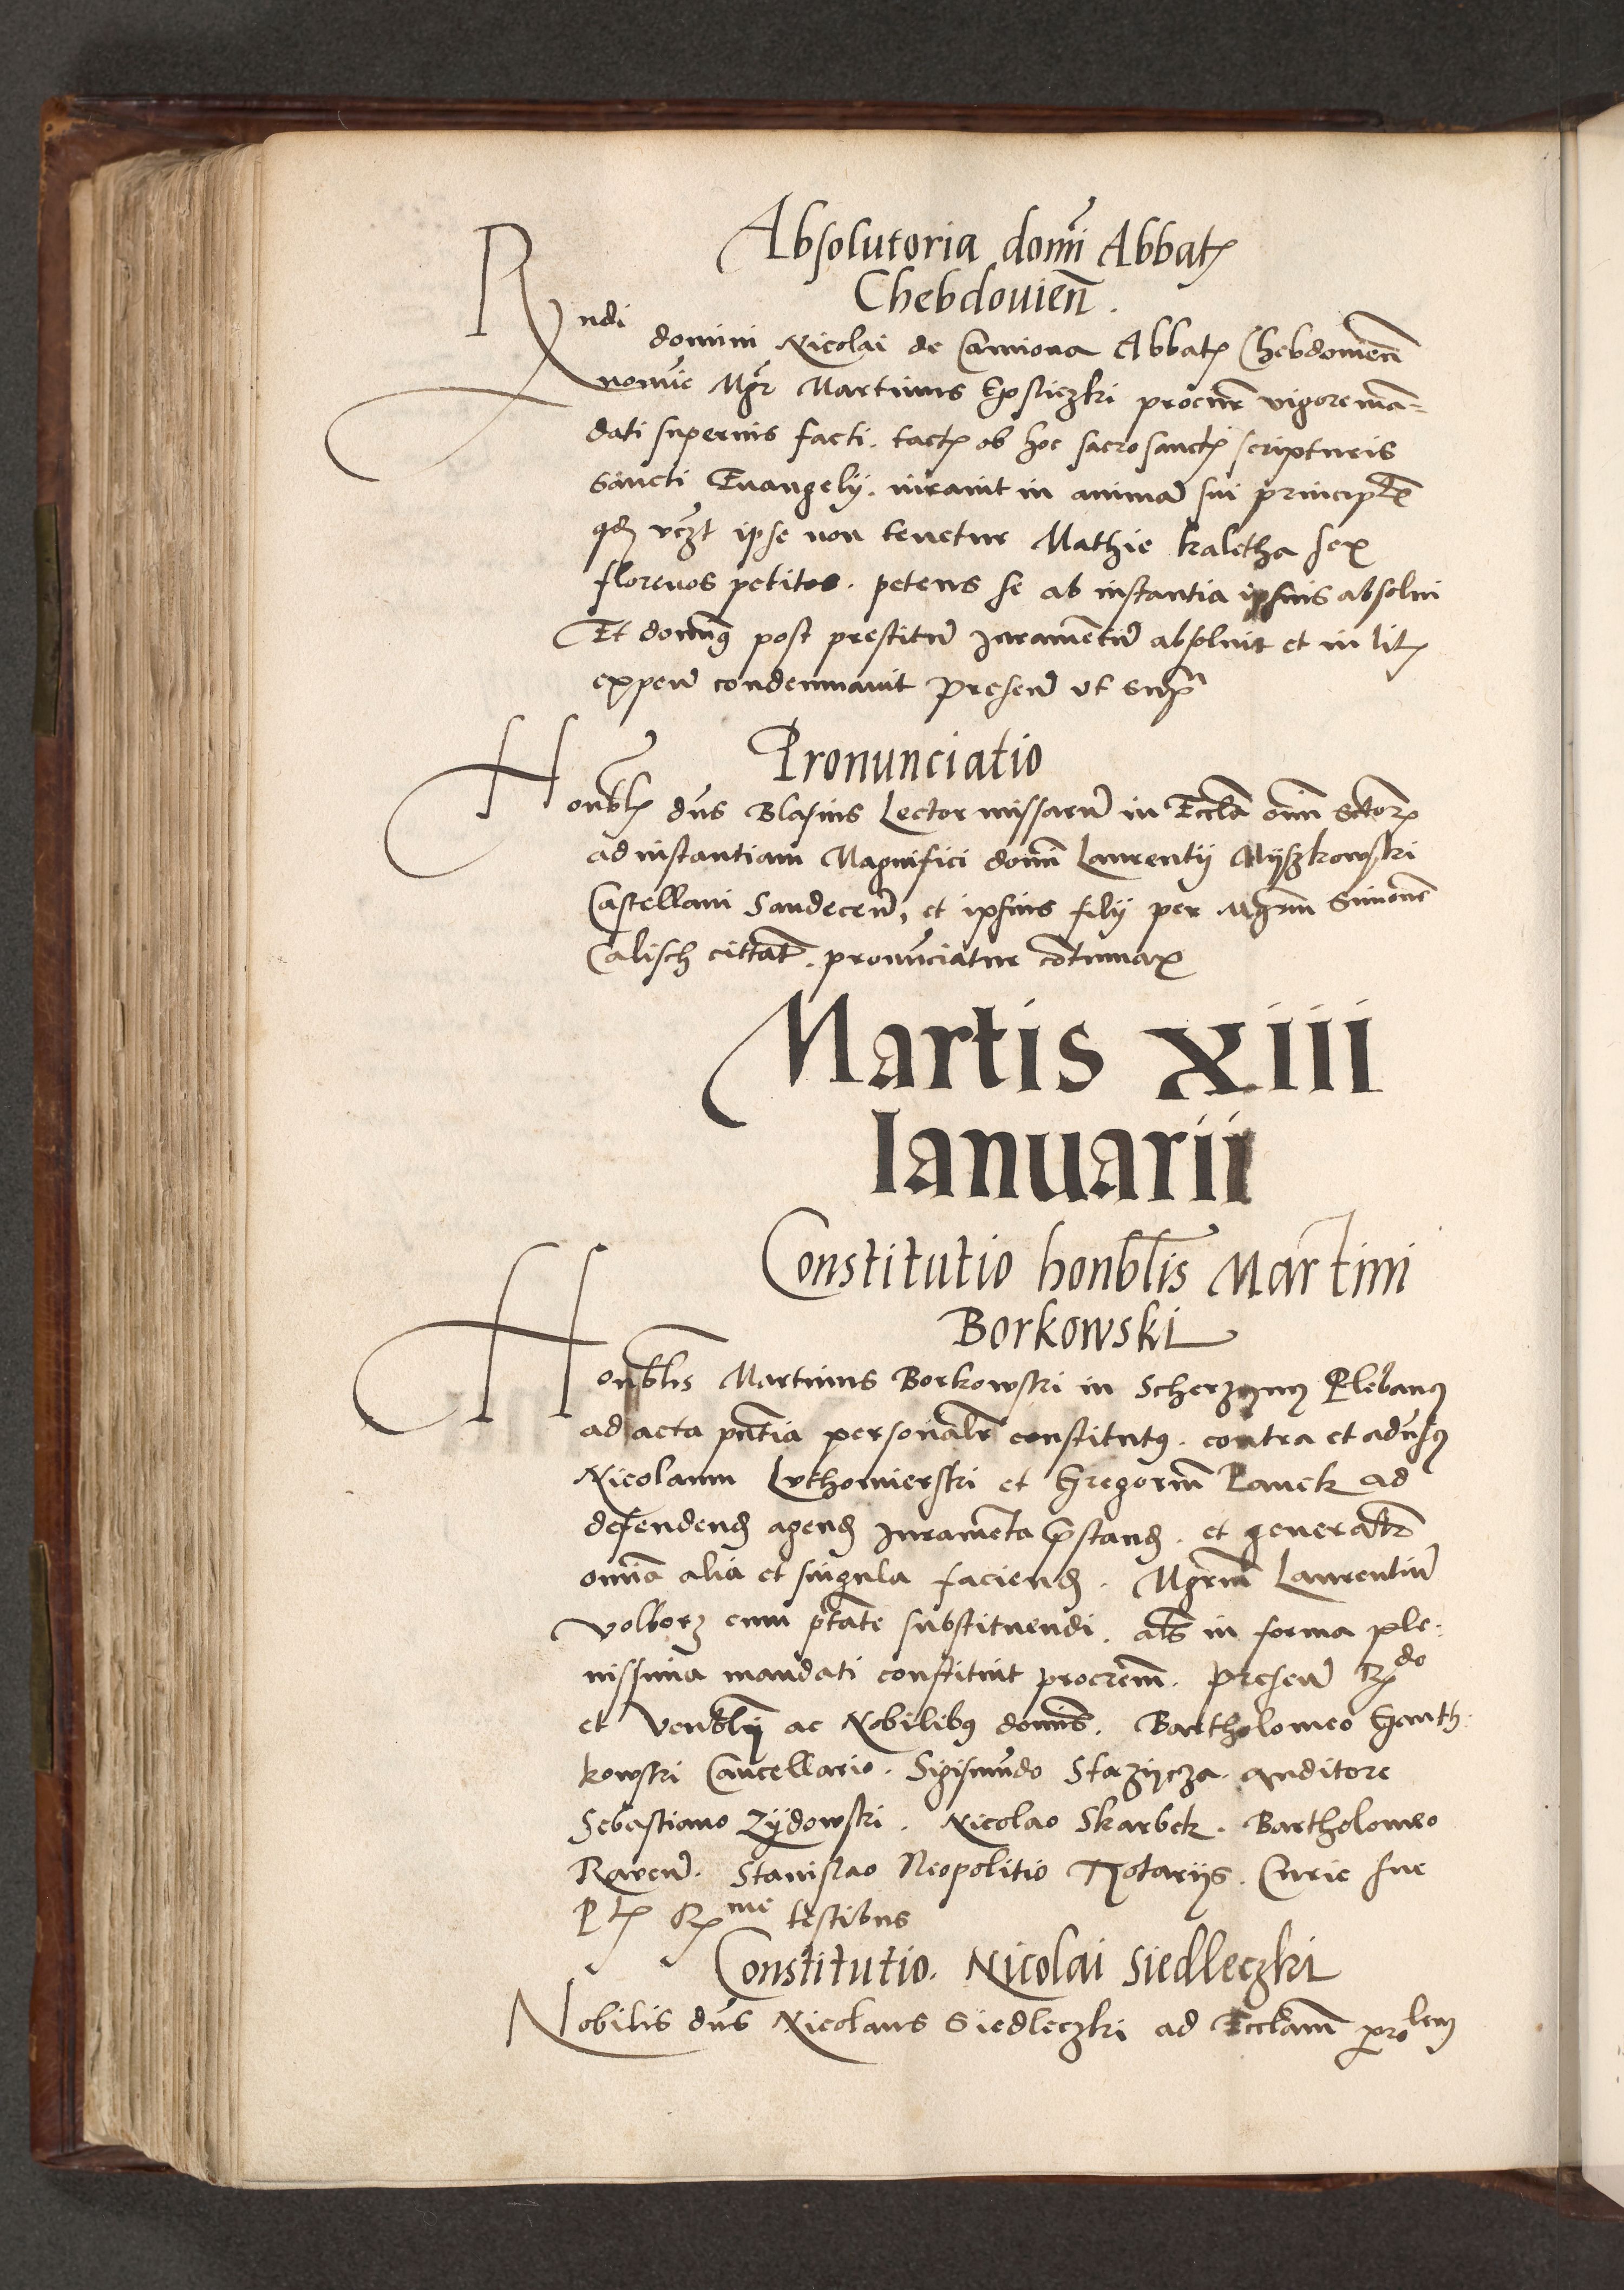 Absolutoria domi Abbatꝭ
Chebdouien̄.
Rndi domini Nicolai de Camiona Abbatꝭ Chebdouien̄
nomīe Mgr Martinus procur̄ vigore man=
dati superius facti. tactꝭ ob hoc sacrosanctꝭ scripturis
Sancti Euangelij. iurauit in animā sui principlꝭ
qđ vczt ipse non tenetur Mathie kaletha sex
florenos petitos. petens se ab instantia ipsius absolui
Et domīg post prestitū Iuramentū absoluit et in litꝭ
expeñ condemnauit presen̄ vt supª
Pronunciatio
Honblꝭ dns Blasius Lector missarū in Eccla oīm sctorꝝ
ad instantiam Magnifici domī Laurentij Myszkowski
Castellani Sandeceñ, et ipsius filij per Mgrm Simonē
Calisch cittat̄. pronūciatur cōtumax
Martis xiii
Ianuarii
Constitutio honblis Martini
Borkowski
Honblis Martinus Borkowski in Plebanꝰ
ad acta pn̄tia personalr̄ constitutꝰ. contra et adu̓sꝰ
Nicolaum Lvthomierski et Gregoriū Pauek ad
defendenđ agenđ Iuramenta p̄standđ. et generalr̄
omīa alia et singula faciendđ. Mgrm̄ Laurentiū
volborz cum ptāte substituendi. als in forma ple:
nissima mandati constituit procrem̄. presen̄ Rdo
et Venblij ac Nobilibꝰ domīs. Bartholomeo Ganth:
kowski Cancellario. Sigismūdo Stazycza. auditore
Sebastiano Zydowski. Nicolao Skarbek. Bartholomeo
Rauen̄. Stanislao Neopolitio Notarijs. Curie sue
Ptꝭ Rme testibus
Constitutio. Nicolai Siedleczki
Nobilis dns Nicolaus Siedleczki ad Ecclam̄ prolem